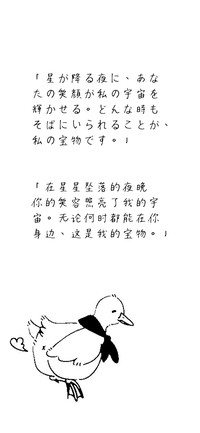 「星が降る夜に、あな
たの笑顔が私の宇宙を
輝かせる。どんな時も
そばにいられることが、
私の宝物です。」
「在星星坠落的夜晚
你的笑容照亮了我的宇
宙。无论何时都能在你
身边、这是我的宝物。」